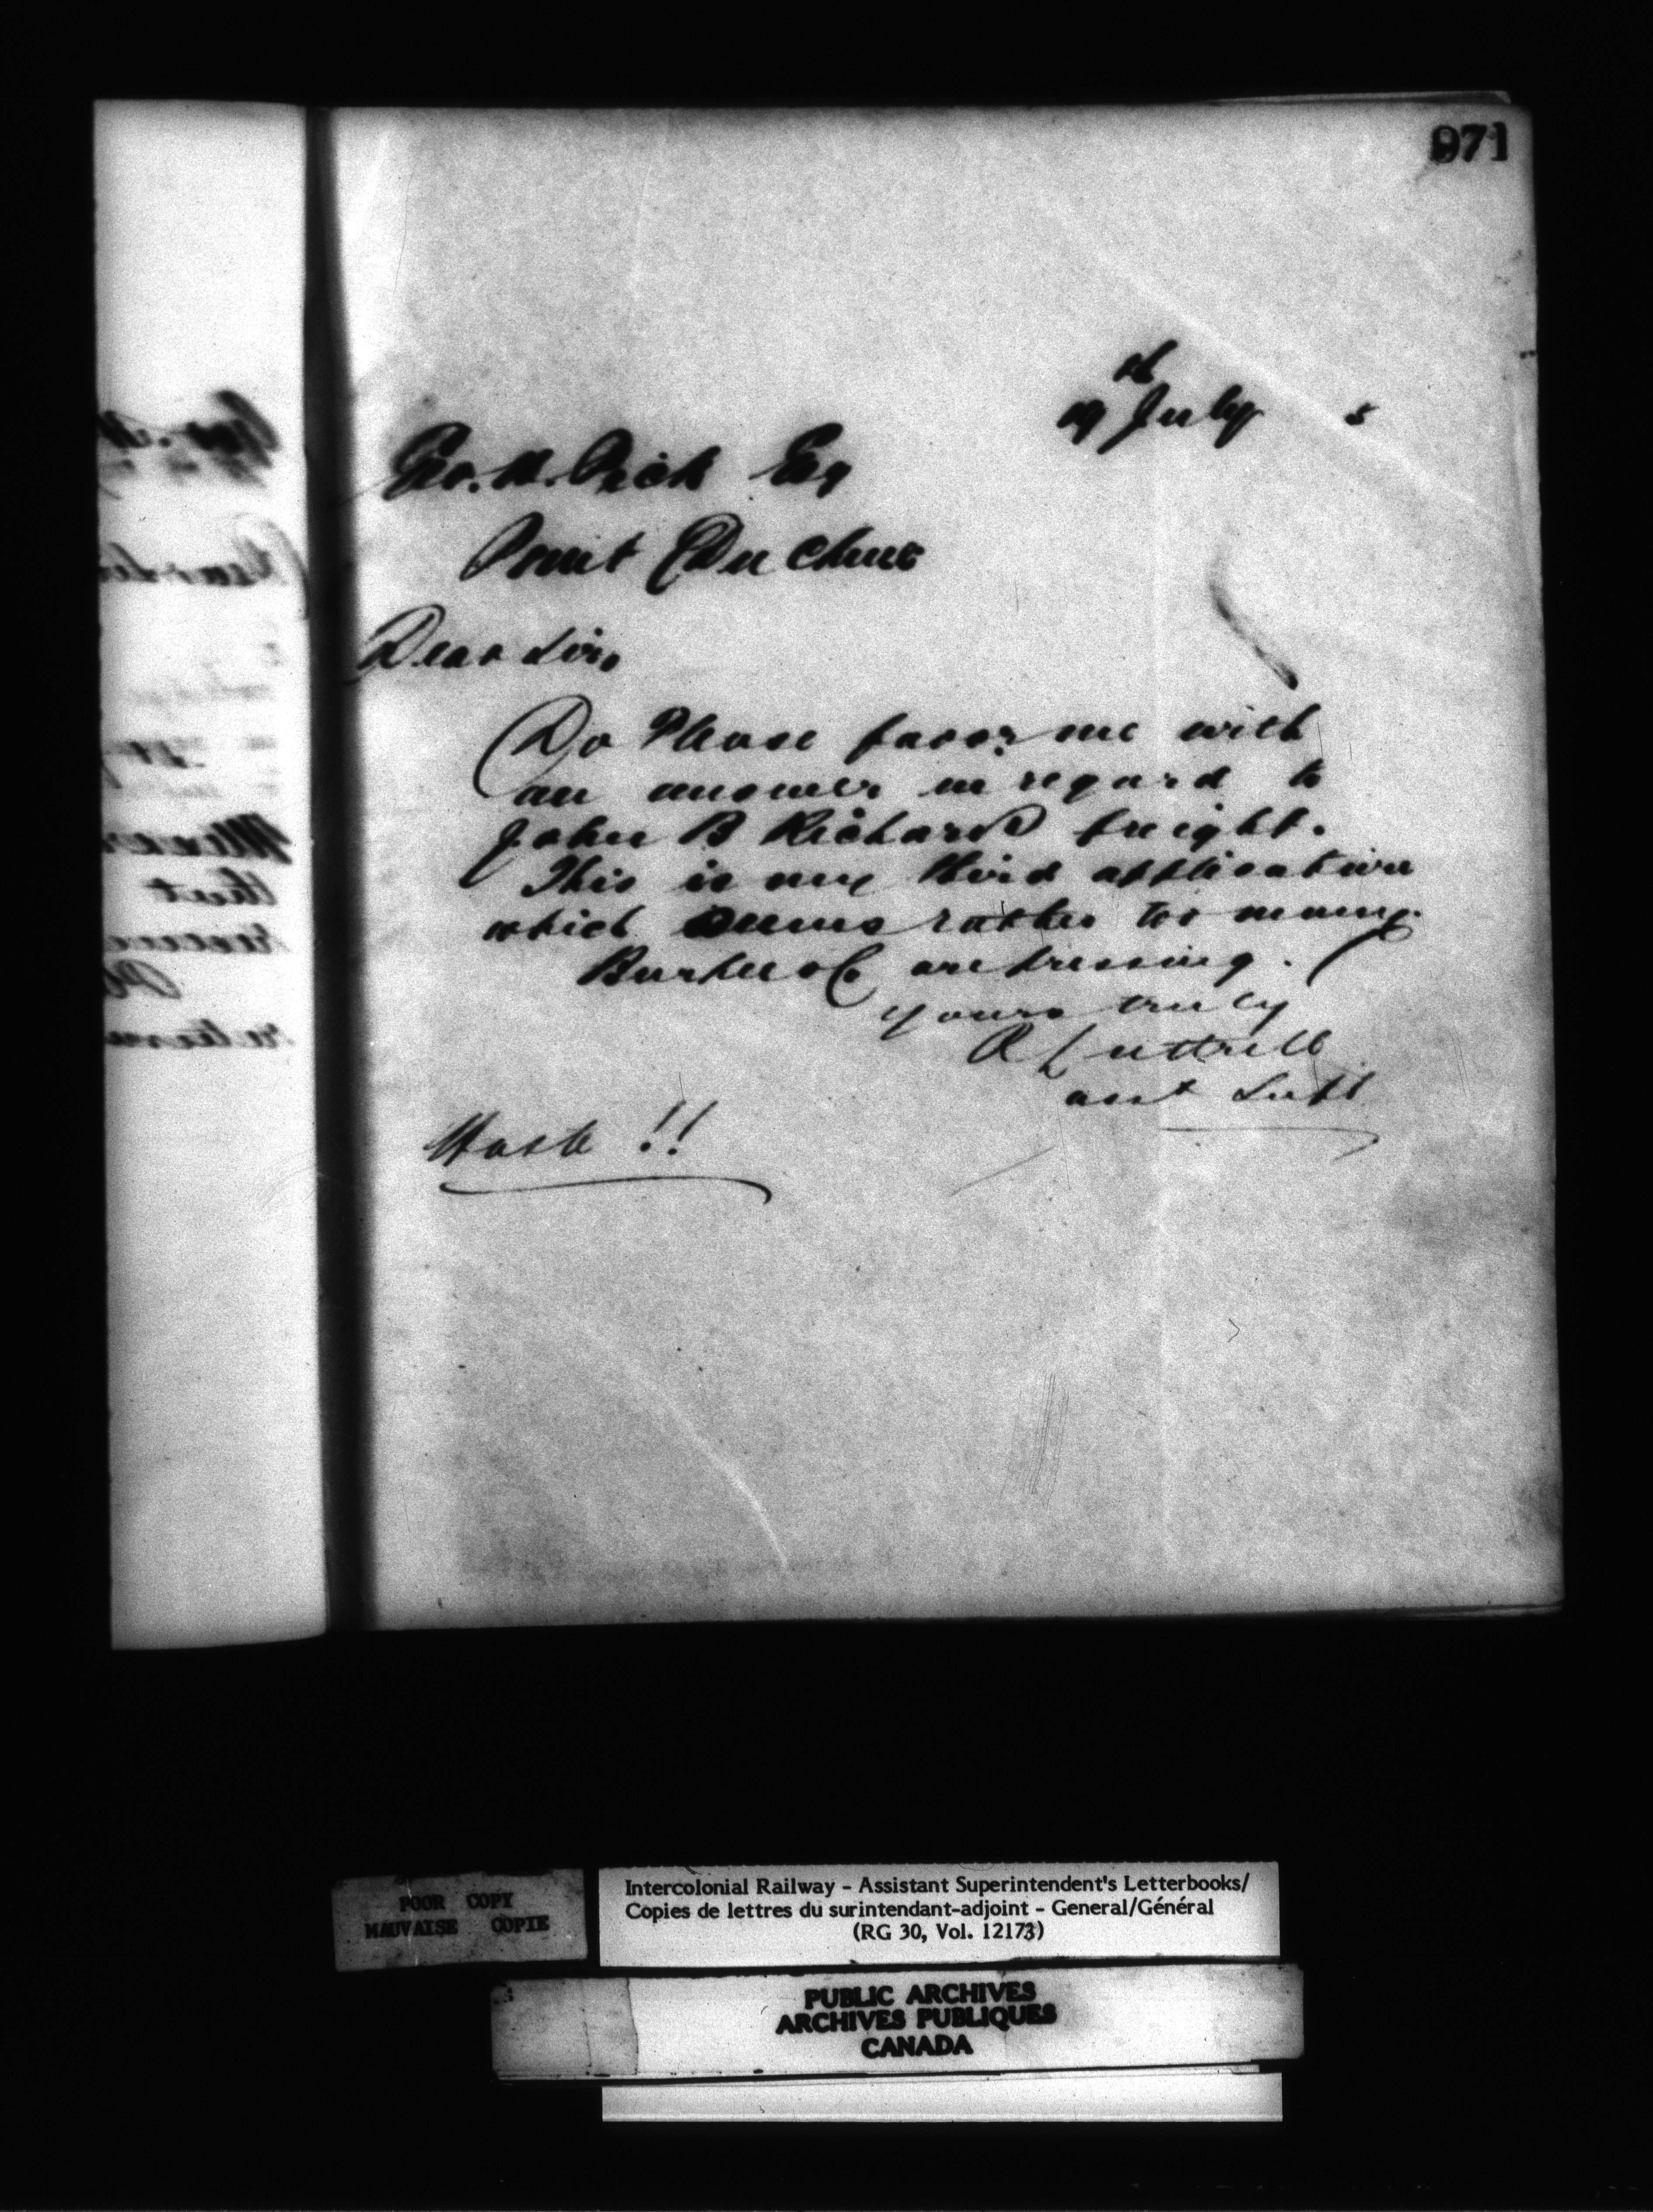 971
19th July 5
Geo. H. Pick Esq
Point Du Chene
Dear Sir,
Do Please favor me with
an answer in regard to
John B Richards freight.
This is my third application
which seems rather too many.
are pressing.
yours truly
R Luttrell
asst Supt
Haste !!
POOR COPY
MAUVAISE COPIE
Intercolonial Railway - Assistant Superintendent's Letterbooks/
Copies de lettres du surintendant-adjoint - General/Général
(RG 30, Vol. 12173)
PUBLIC ARCHIVES
ARCHIVES PUBLIQUES
CANADA